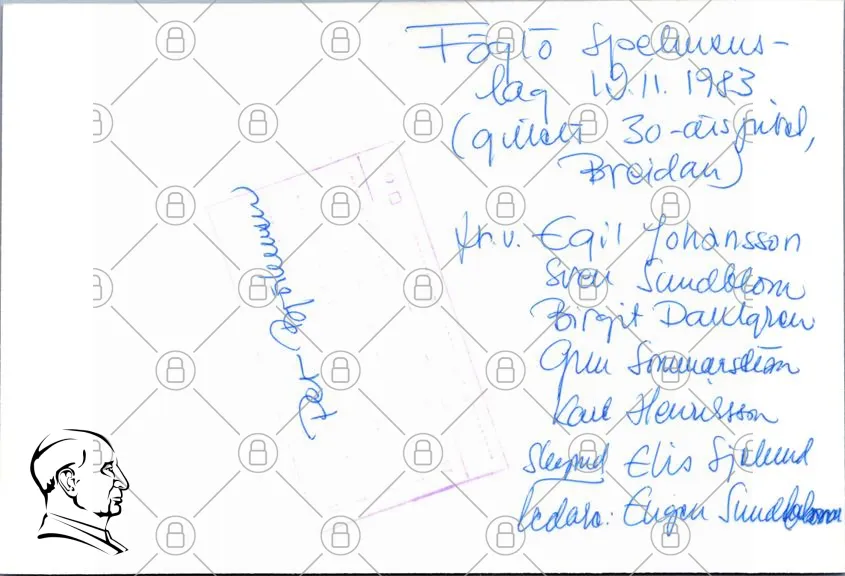 Föglö Spelmans-
lag 19.11.1983
(gillets 30-årsjubel,
Breidan)
fr.v. Egil Johansson
Sven Sundblom
Birgit Dahlgren
Gren Sommarström
Karl Henriksson
Elis Sjölund
ledare: Eugen Sundblom
Per-